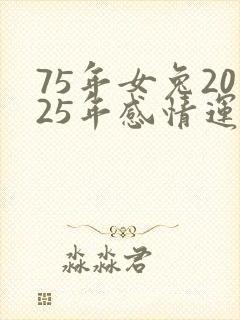 75年女兔20
25年感情运
淼淼君